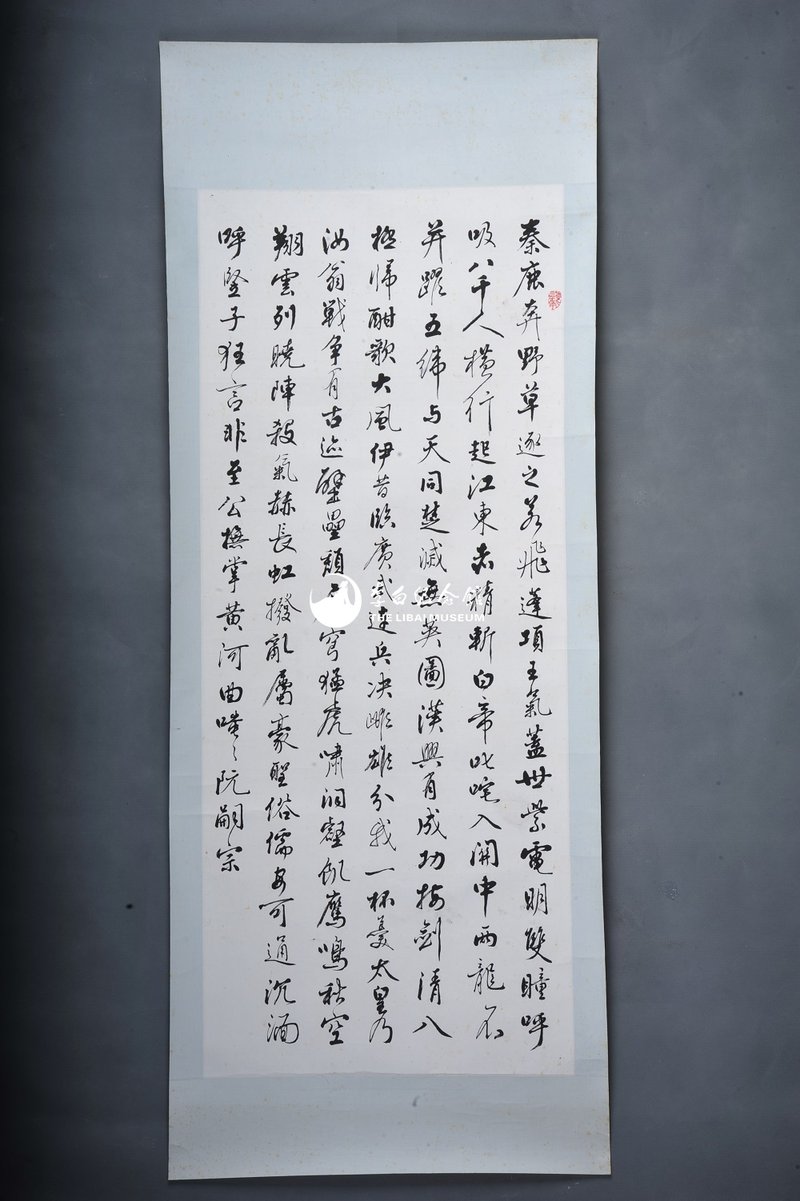 秦鹿奔野草逐之若飛蓬項王氣蓋世紫電明雙瞳呼
吸八千人橫行起江東赤精斬白帝叱咤入關中兩龍不
并躍五緯与天同楚滅無英圖漢興有成功按劍清八
極歸酣歌大風伊昔臨廣武連兵決雌雄分我一杯羹太皇乃
汝翁戰爭有古迹壁壘頹穹猛虎嘯洞壑飢鷹鳴秋空
翔雲列曉陣殺氣赫長虹撥亂屬豪聖俗儒安可通沉湎
呼豎子狂言非至公撫掌黃河曲嗤々阮嗣宗
李白纪念馆
THE LIBAI MUSEUM